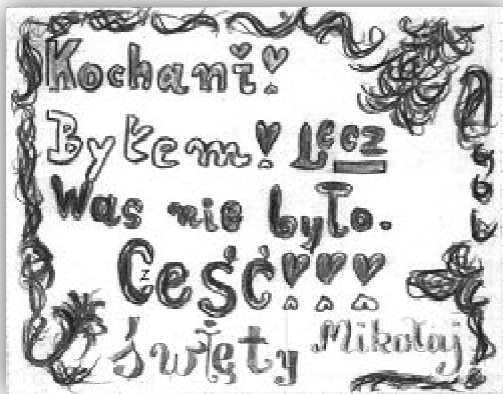 Kochani!
Byłem! Lecz
Was nie było.
Cześć!!!
święty Mikołaj